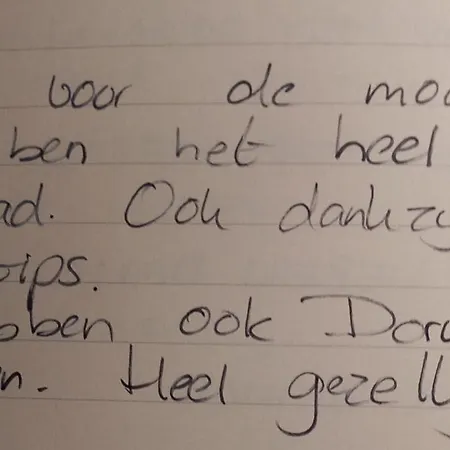 voor de moo
ben het heel
ad. Ook dankzy
ips.
bben ook Doro
n. Heel gezell